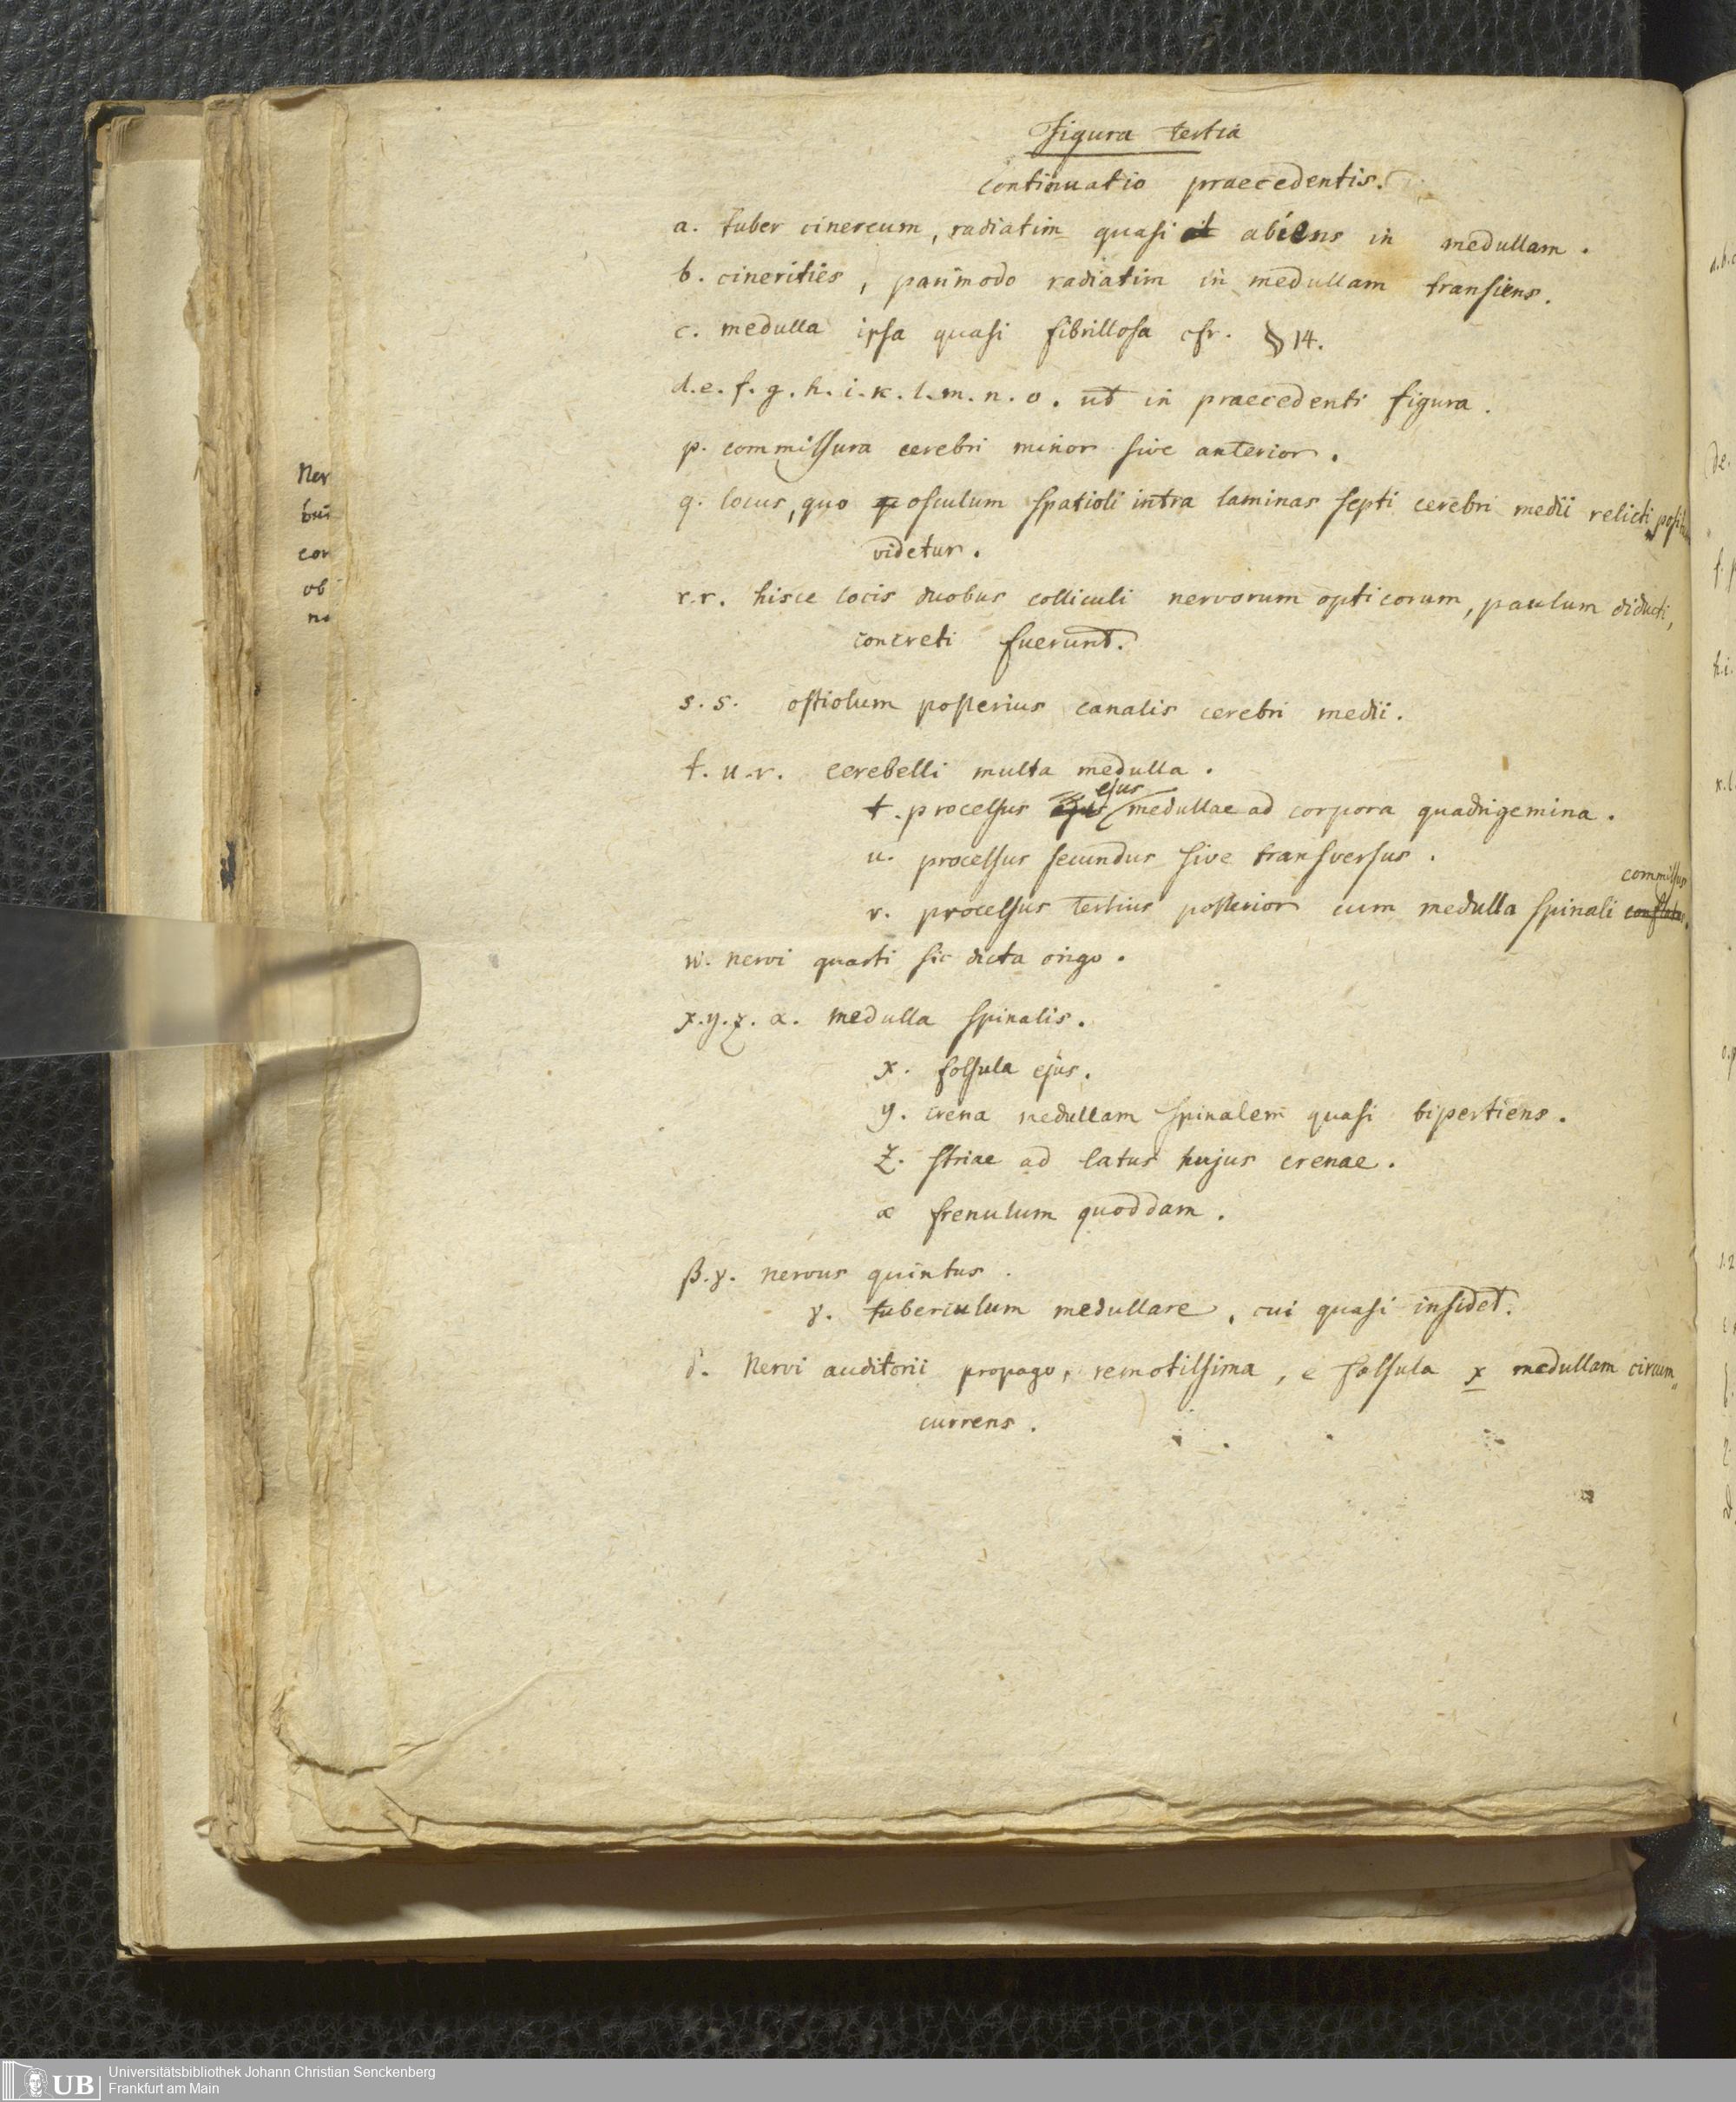 Figura tertia
continuatio praecedentis.
a. tuber cinereum, radiatim quasi abiens in medullam.
b. cinerities, parimodo radiatim in medullam transiens.
c. medulla ipsa quasi fibrillosa cfr. § 14.
d. e. f. g. h. i. k. l. m. n. o. ut in praecedenti figura.
p. commissura cerebri minor sive anterior.
q. locus, quo osculum spatioli intra laminas septi cerebri medii relicti
videtur.
r. r. hisce locis duobus colliculi nervorum opticorum, paulum diducti,
concreti fuerunt.
s. s. ostiolum posterius canalis cerebri medii.
t. u. v. cerebelli multa medulla.
ejus
t. processus ejus medullae ad corpora quadrigemina.
u. processus secundus sive transversus.
commissus
v. processus tertius posterior cum medulla spinali
w. nervi quarti sic dicta origo.
x. y. z. α. medulla spinalis.
x. fossula ejus.
y. crena medullam spinalem quasi bipertiens.
z. striae ad latus hujus crenae.
α frenulum quoddam.
β. γ. nervus quintus.
γ. tuberculum medullare, cui quasi insidet.
δ. Nervi auditorii propago, remotissima, e fossula x medullam circum„
currens.
Ner
bui
cor
ob
no
Universitätsbibliothek Johann Christian Senckenberg
Frankfurt am Main
UB